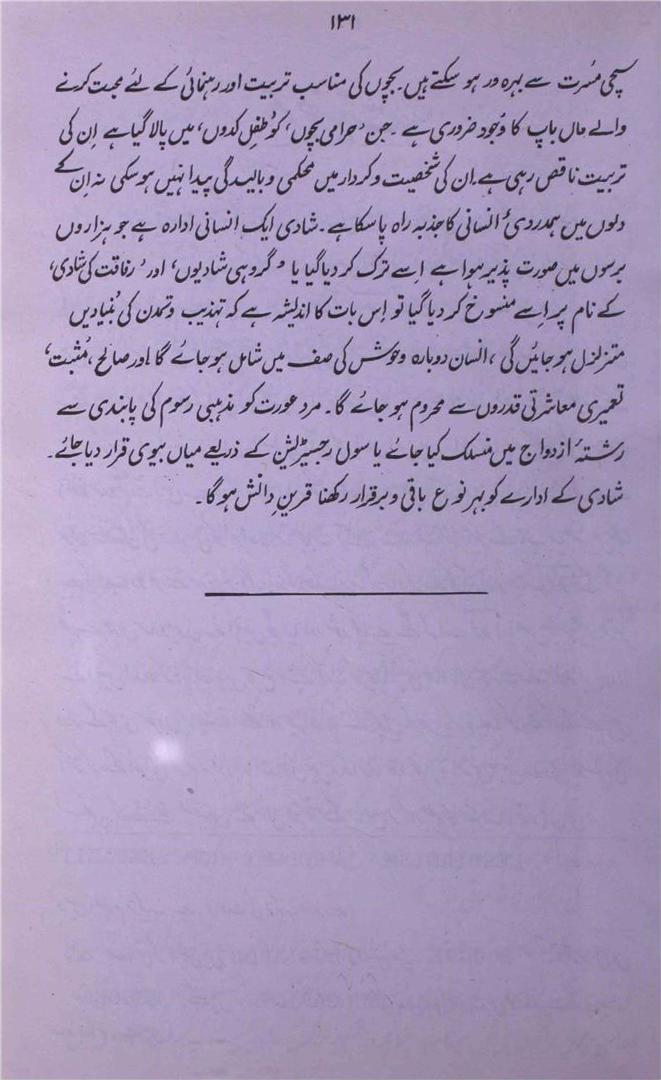 ۱۳۱
سچی مسُرت سے بہرہ ور ہو سکتے ہیں۔ بچّوں کی مناسب تربیت اور رہنمائی کے لئے محبت کرنے
والے ماں باپ کا وُجود ضروری ہے ۔ جن ’حرامی بچّوں‘ کو ’طفل کدوں‘ میں پالا گیا ہے اِن کی
تربیت ناقص رہی ہے۔ اِن کی شخصیت و کردار میں محکمی و بالیدگی پیدا نہیں ہو سکی نہ اِن کے
دلوں میں ہمدردیٔ انسانی کا جذبہ راہ پا سکا ہے۔ شادی ایک اِنسانی ادارہ ہے جو ہزاروں
برسوں میں صورت پذیر ہوا ہے اِسے ترک کر دیا گیا یا ’گروہی شادیوں‘ اور ’رفاقت کی شادی‘
کے نام پر اِسے منسوخ کر دیا گیا تو اِس بات کا اندیشہ ہے کہ تہذیب و تمدن کی بُنیادیں
متزلزل ہو جائیں گی ، انسان دوبارہ وحوش کی صف میں شامل ہو جائے گا اور صالح ، مُثبت ‘
تعمیری معاشرتی قدروں سے محروم ہو جائے گا۔ مرد عورت کو مذہبی رسوم کی پابندی سے
رشتۂ ازدواج میں منسلک کیا جائے یا سول رجسٹریشن کے ذریعے میاں بیوی قرار دیا جائے۔
شادی کے ادارے کو بہر نوع باقی و برقرار رکھنا قرینِ دانش ہو گا ۔